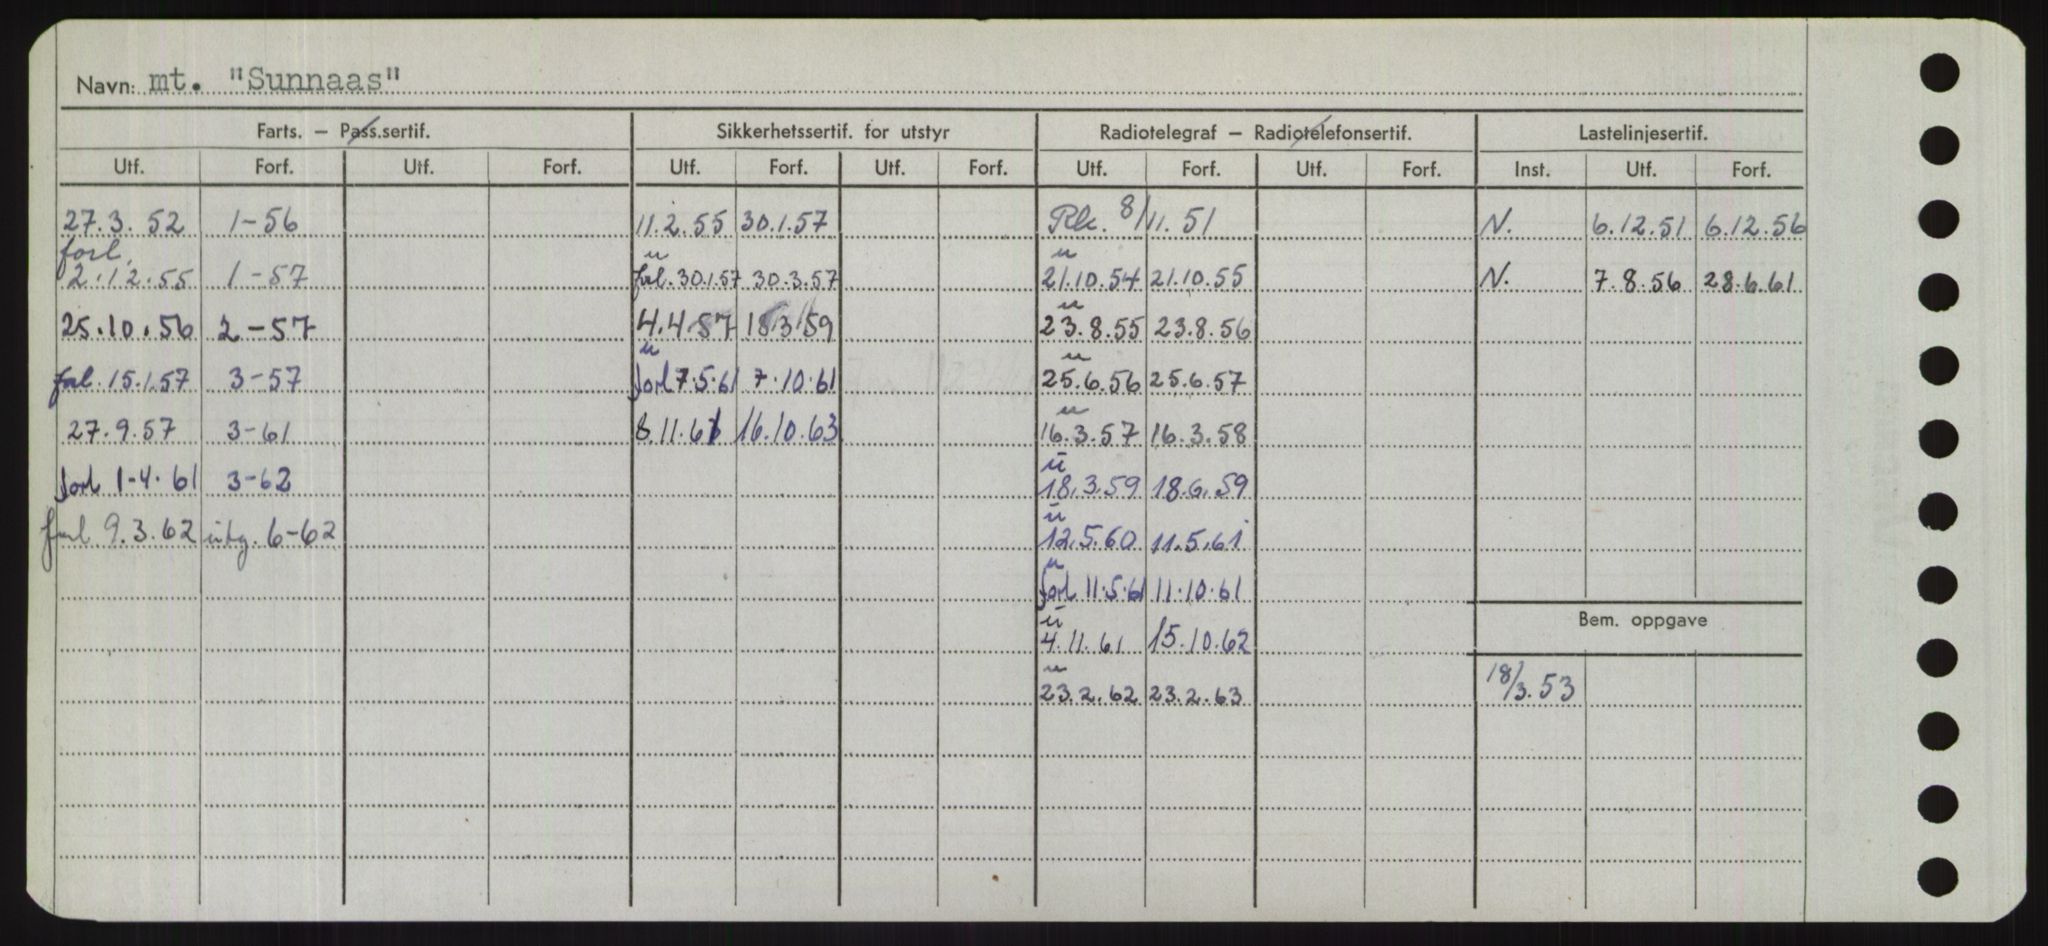 Navn: mt. "Sunnaas"
Farts. — Pass.sertif. Sikkerhetssertif. for utstyr Radiotelegraf — Radiotelefonsertif. Lastelinjesertif.
Utf. Forf. Utf. Forf. Utf. Forf. Utf. Forf. Utf. Forf. Utf. Forf. Inst. Utf. Forf.
27.3.52 1-56 11.2.55 30.1.57 8/11.51 N. 6.12.51 6.12.56
forl. u u
2.12.55 1-57 30.1.57 30.3.57 21.10.54 21.10.55 N. 7.8.56 28.6.61
u
25.10.56 2-57 4.4.57 18.3.59 23.8.55 23.8.56
u u
15.1.57 3-57 forl 7.5.61 7.10.61 25.6.56 25.6.57
u
27.9.57 3-61 8.11.61 16.10.63 16.3.57 16.3.58
u
forl 1-4.61 3-62 18.3.59 18.6.59
u
9.3.62 utg. 6-62 12.5.60 11.5.61
u
forl 11.5.61 11.10.61
Bem. oppgave
u
4.11.61 15.10.62
u
23.2.62 23.2.63 18/3.53